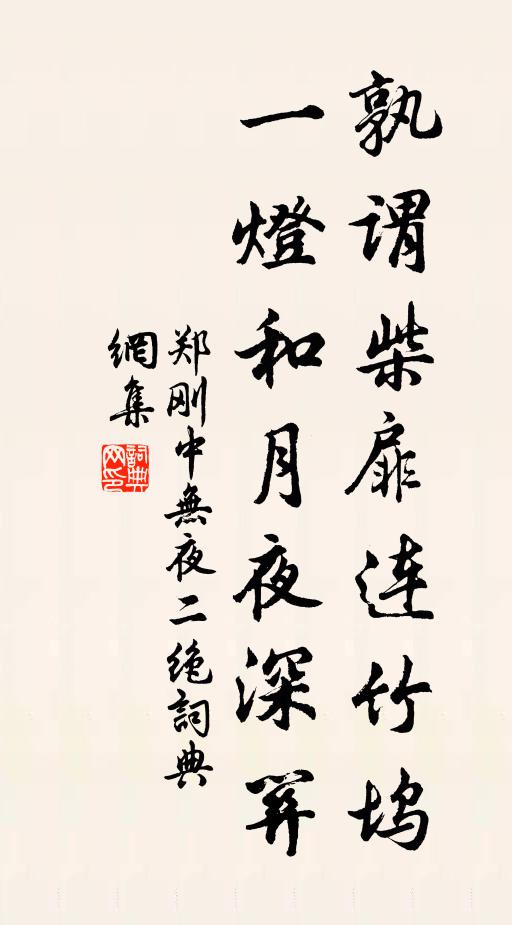 孰谓柴扉连竹坞
一燈和月夜深羿
郑刚中無夜二绝詞典
網集
詞典网印